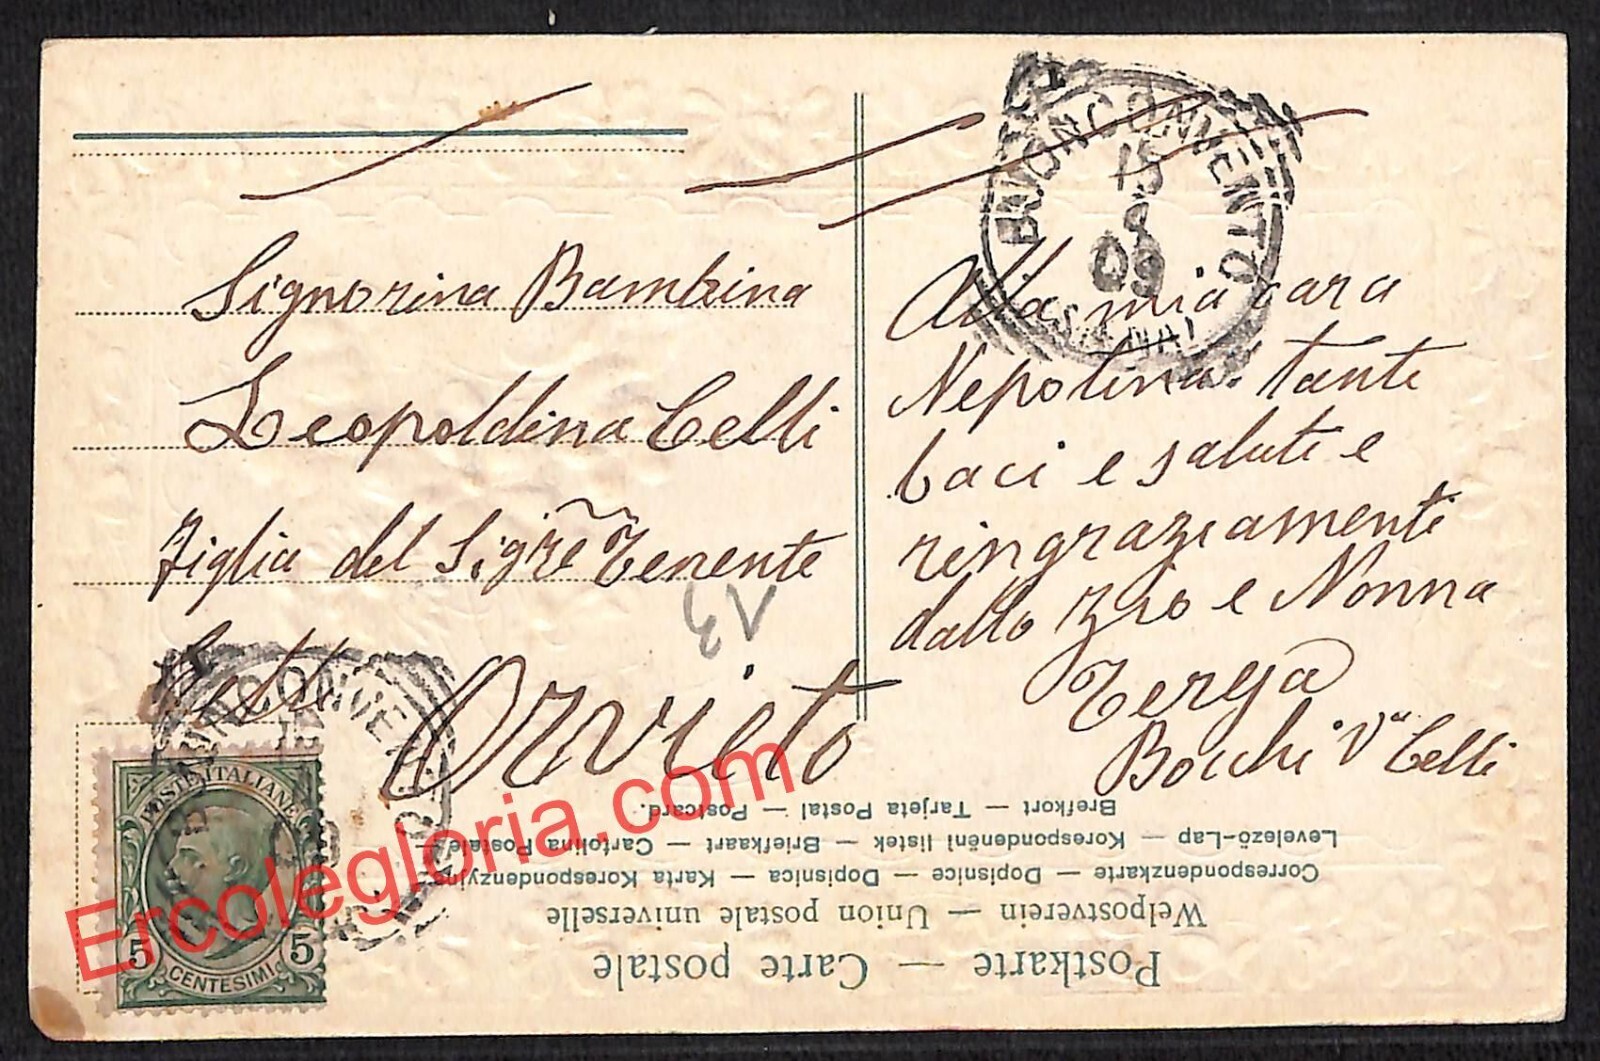 Signorina Bambina
Leopoldina Celli
Figlia del Sig:re Tenente
Celli
Orvieto
13
Alla mia cara
Nepotina. tante
baci e salute e
ringraziamenti
dallo Zio e Nonna
Teresa
Bocchi Va Celli
BUONCONVENTO
15
8
09
(SIENA)
BUONCONVENTO
POSTE ITALIANE
5 5
CENTESIMI
Postkarte — Carte postale
Welpostverein — Union postale universelle
Correspondenzkarte — Dopisnice — Dopisnica — Karta Korespondenzyjna
Levelező-Lap — Korespondenční listek — Briefkaart — Cartolina Postale
Brefkort — Tarjeta Postal — Postcard.
Ercolegloria.com